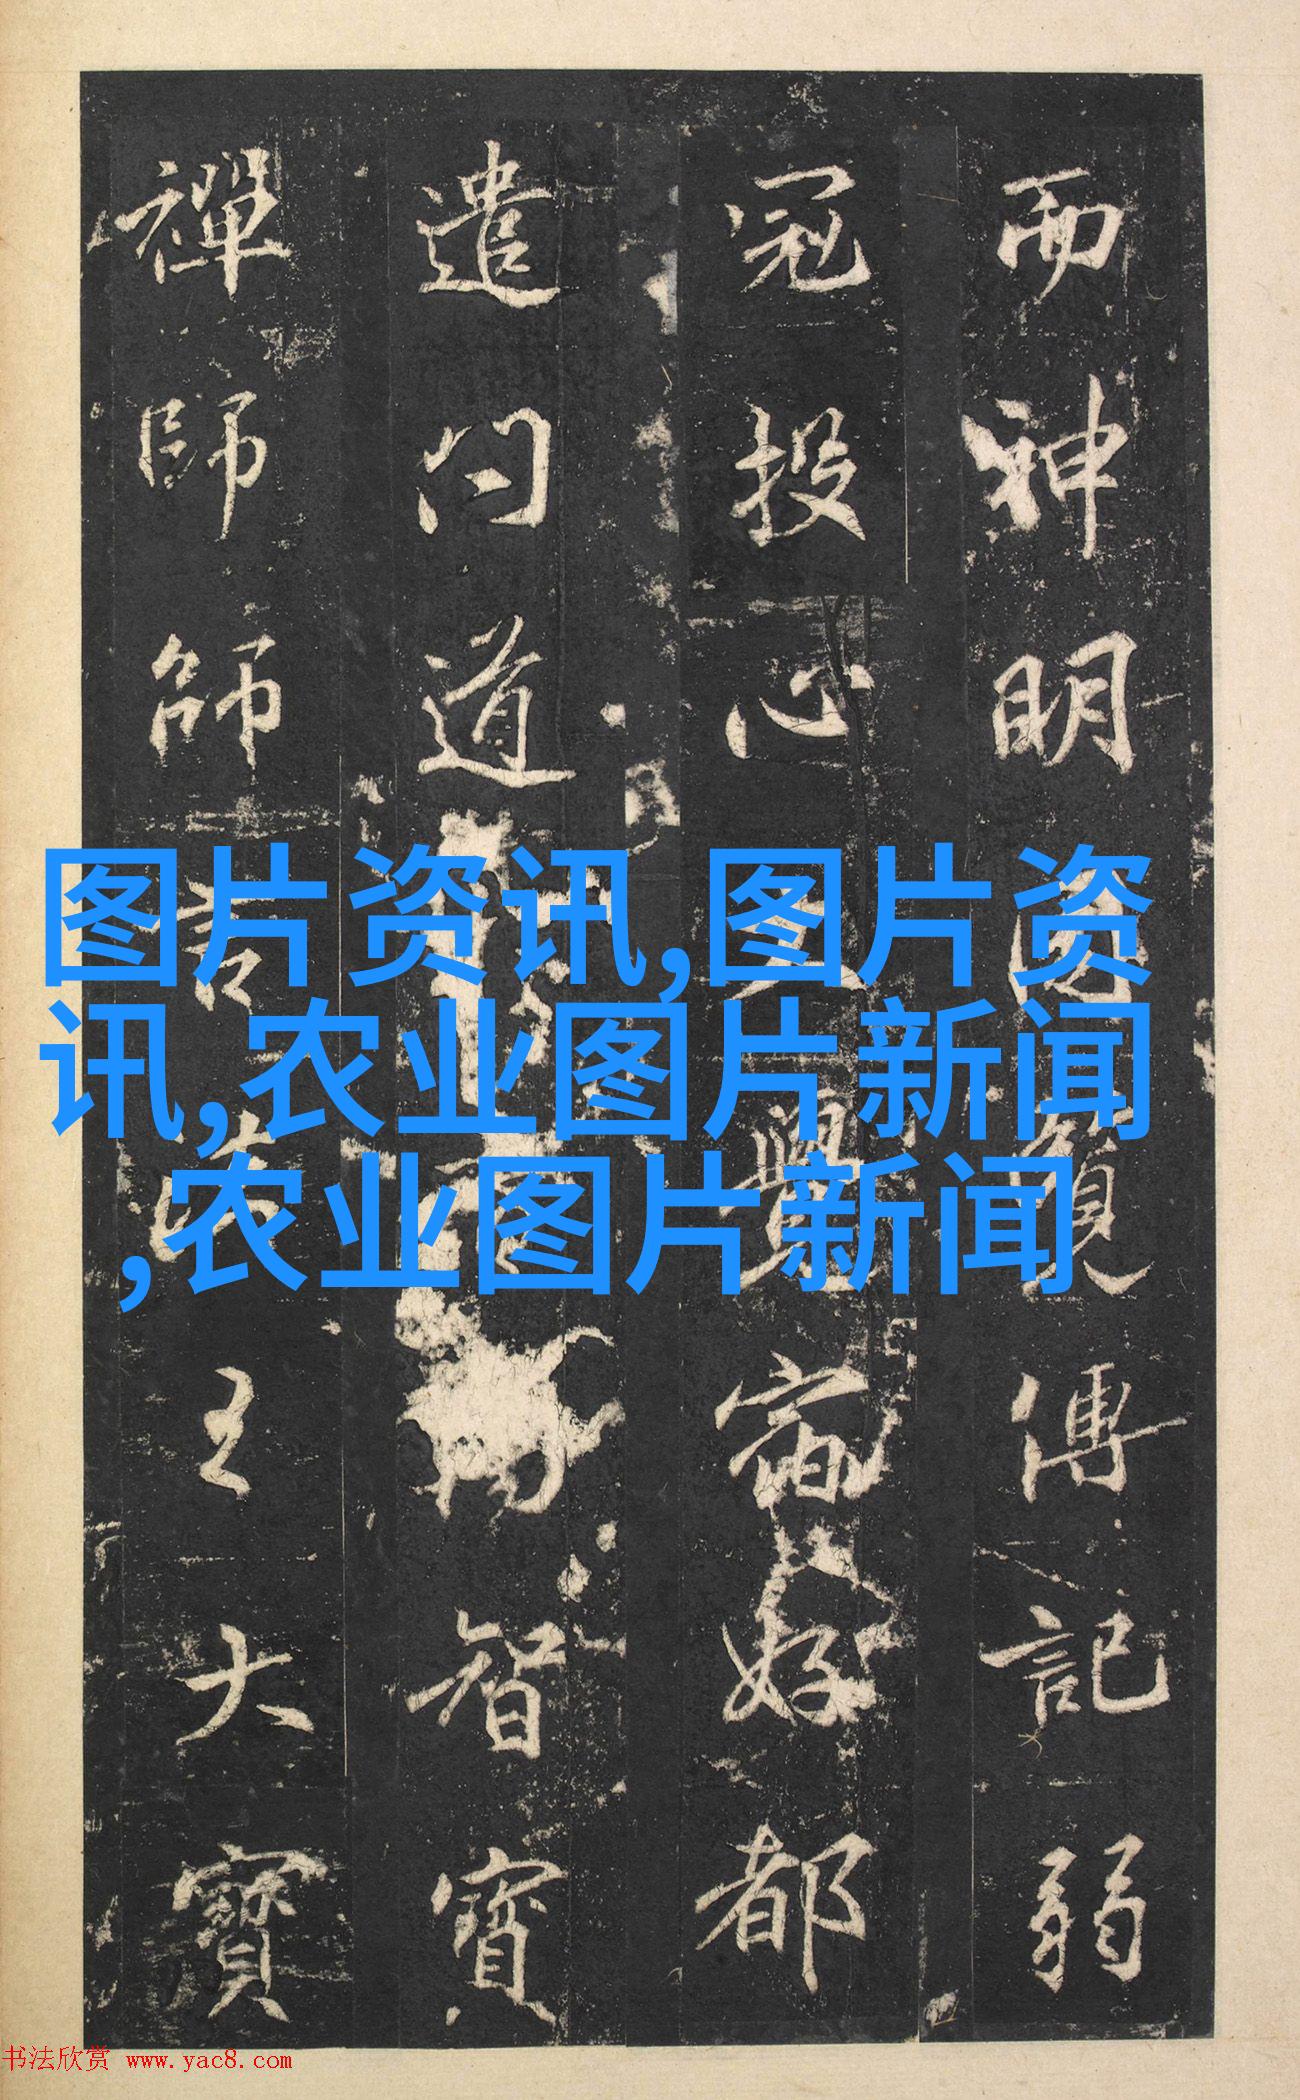 而神明図覽傳記弱
冠投心覺宿好都
遣問道陽智寶
禪師師言法王大寶
图片资讯,图片资
讯,农业图片新闻
,农业图片新闻
书法欣赏 www.yac8.com